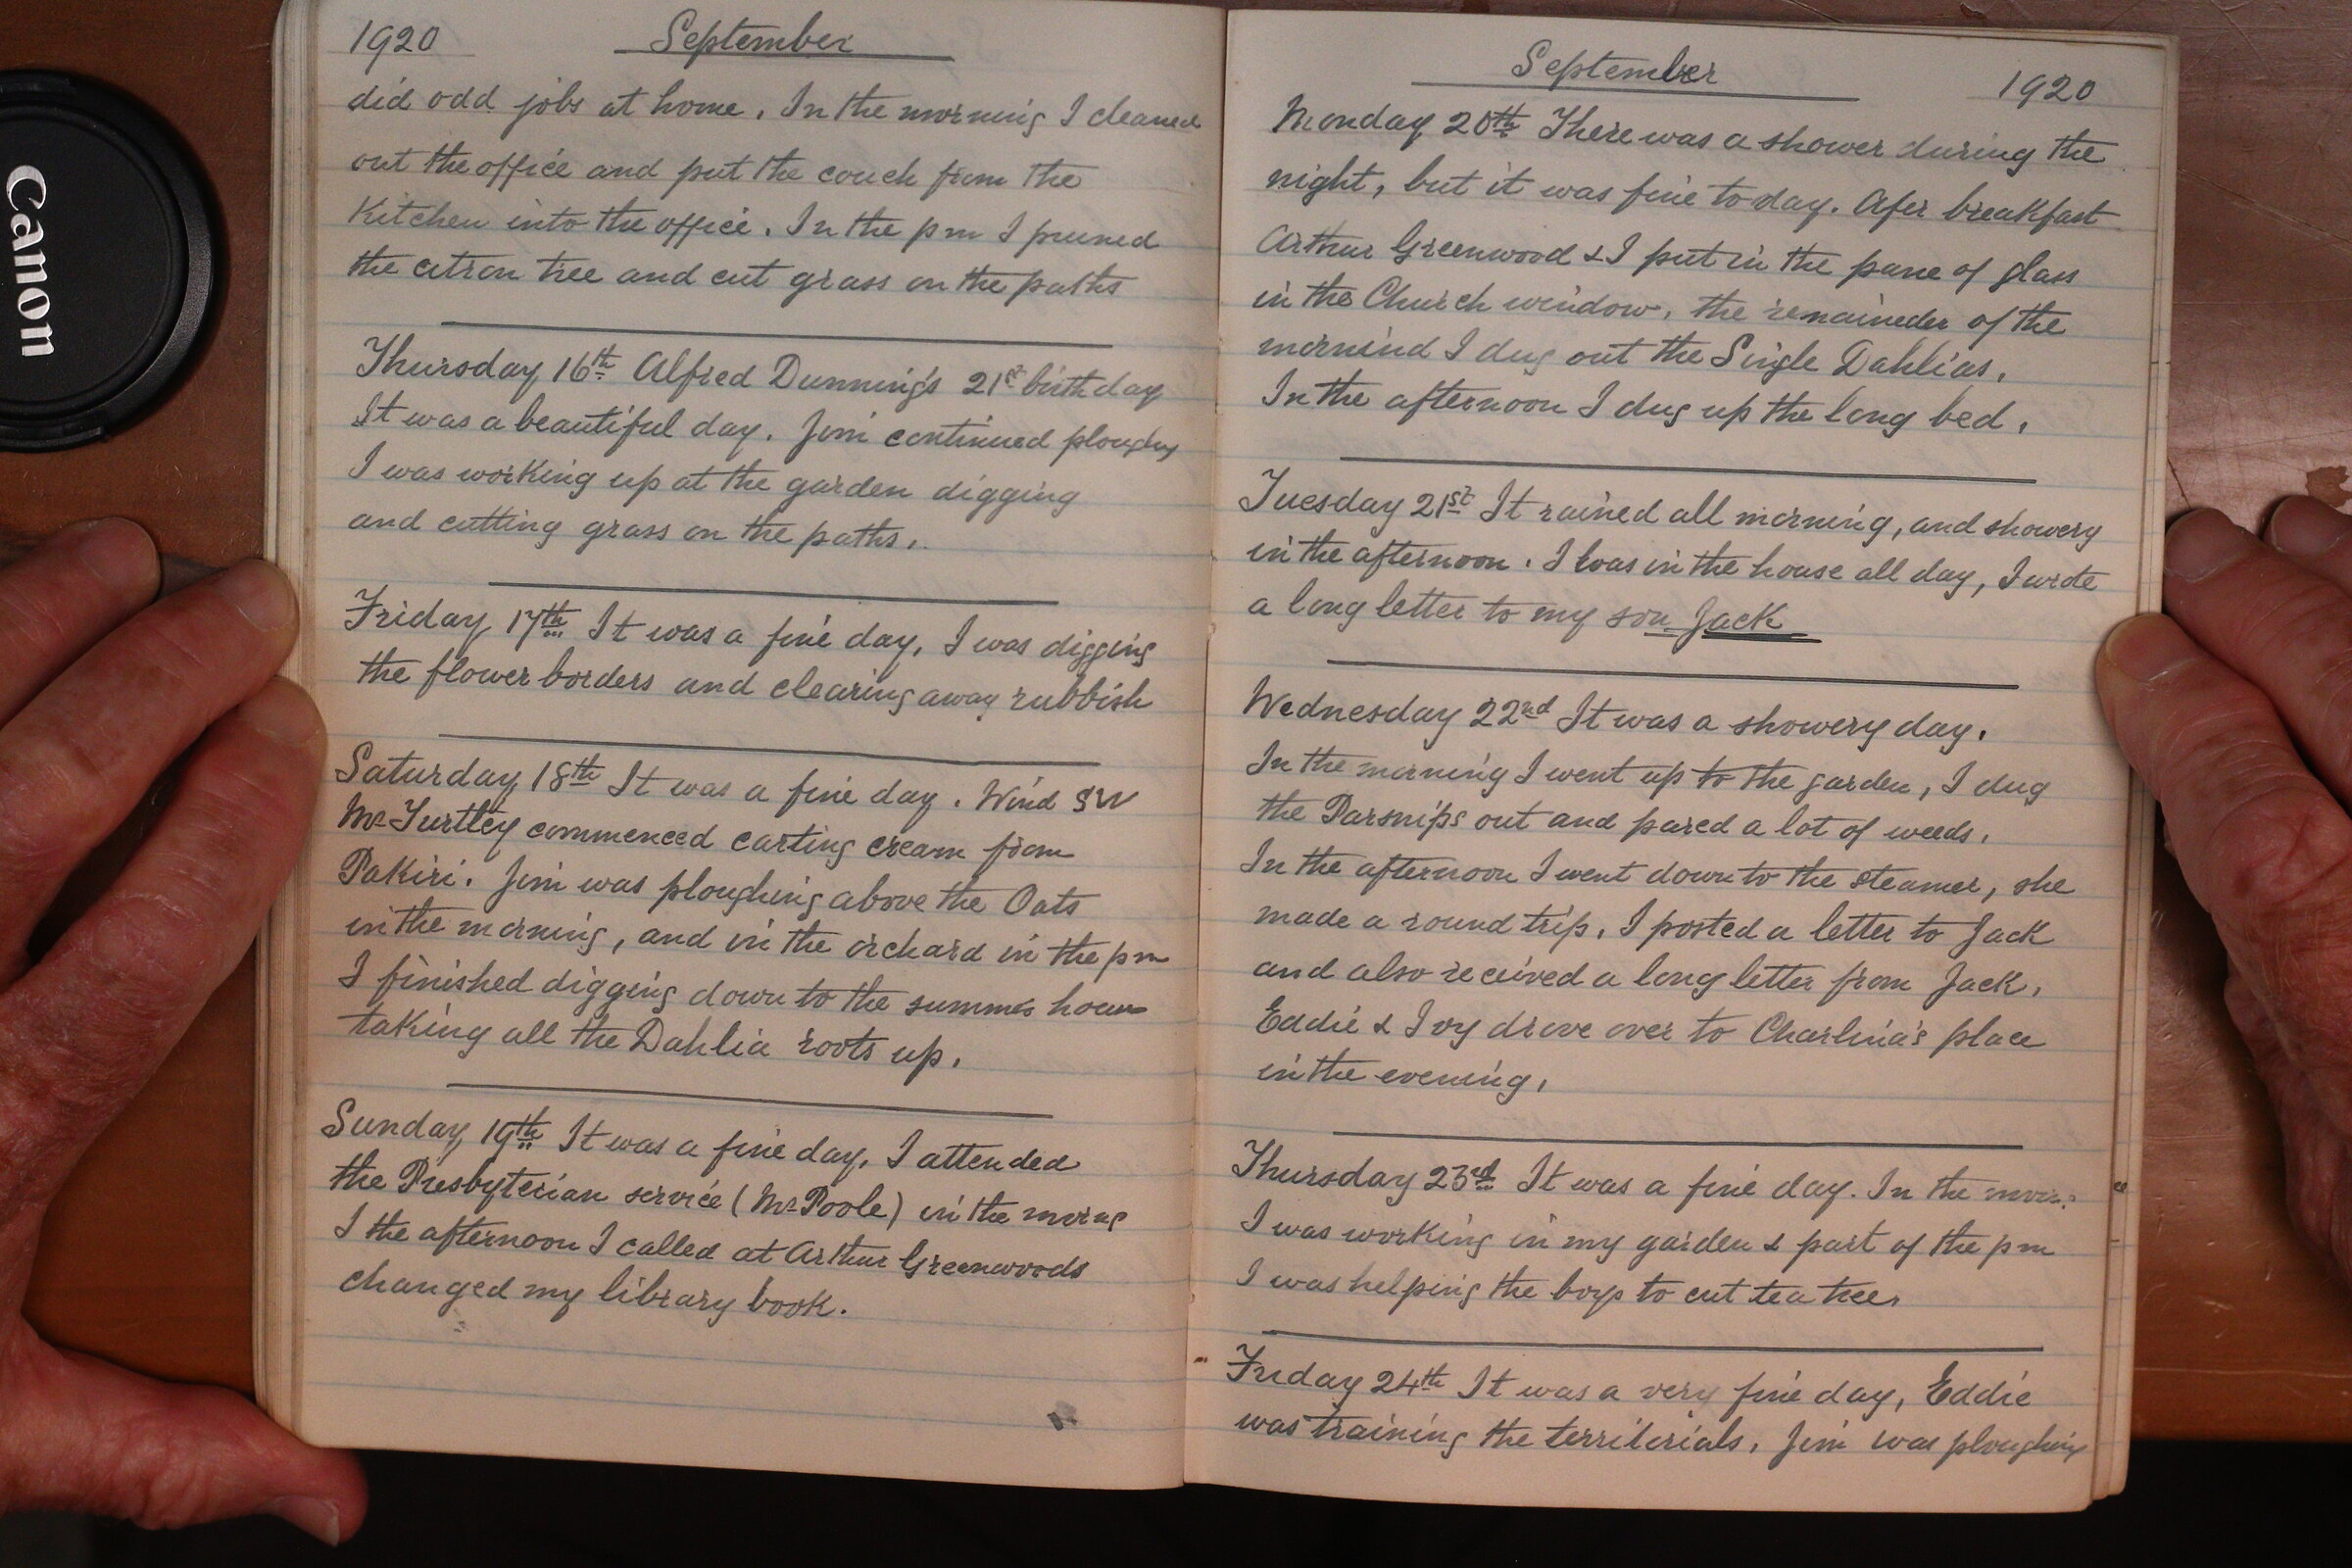 Canon
1920 September
did odd jobs at home. In the morning I cleaned
out the office and put the couch from the
Kitchen into the office. In the pm I pruned
the citron tree and cut grass on the paths
Thursday 16th Alfred Dunning's 21st birthday
It was a beautiful day. Jim continued ploughg
I was working up at the garden digging
and cutting grass on the paths.
Friday 17th It was a fine day, I was digging
the flower borders and clearing away rubbish
Saturday 18th It was a fine day. Wind SW
Mr Turtley commenced carting cream from
Pakiri. Jim was ploughing above the Oats
in the morning, and in the orchard in the pm
I finished digging down to the summer house
taking all the Dahlia roots up.
Sunday 19th It was a fine day. I attended
the Presbyterian service (Mr Poole) in the morng
I the afternoon I called at Arthur Greenwoods
changed my library book.
September 1920
Monday 20th There was a shower during the
night, but it was fine today. Afer breakfast
Arthur Greenwood & I put in the pane of glass
in the Church window, the remaineder of the
mornind I dug out the Single Dahlias.
In the afternoon I dug up the long bed.
Tuesday 21st It rained all morning, and showery
in the afternoon. I was in the house all day, I wrote
a long letter to my son Jack
Wednesday 22nd It was a showery day.
In the morning I went up to the garden, I dug
the Parsnips out and pared a lot of weeds.
In the afternoon I went down to the steamer, she
made a round trip. I posted a letter to Jack
and also received a long letter from Jack.
Eddie & Ivy drove over to Charlina's place
in the evening.
Thursday 23rd It was a fine day. In the morn:
I was working in my garden & part of the pm
I was helping the boys to cut tea tree.
Friday 24th It was a very fine day, Eddie
was training the territorials. Jim was ploughing